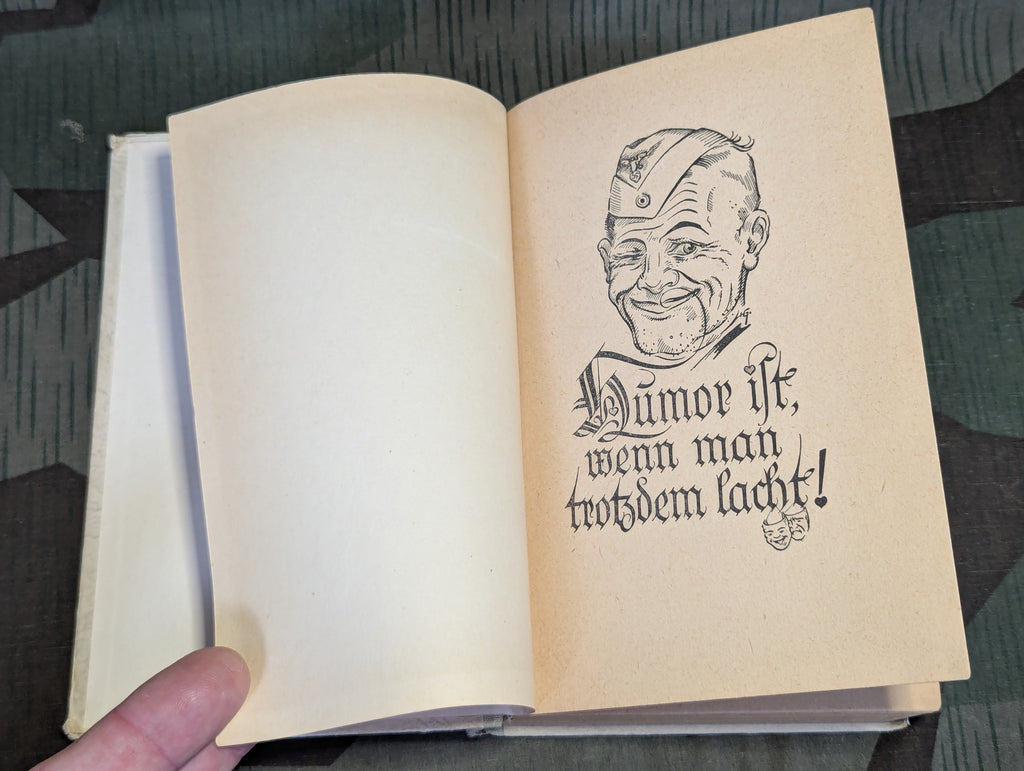 Humor ist,
wenn man
trotzdem lacht!